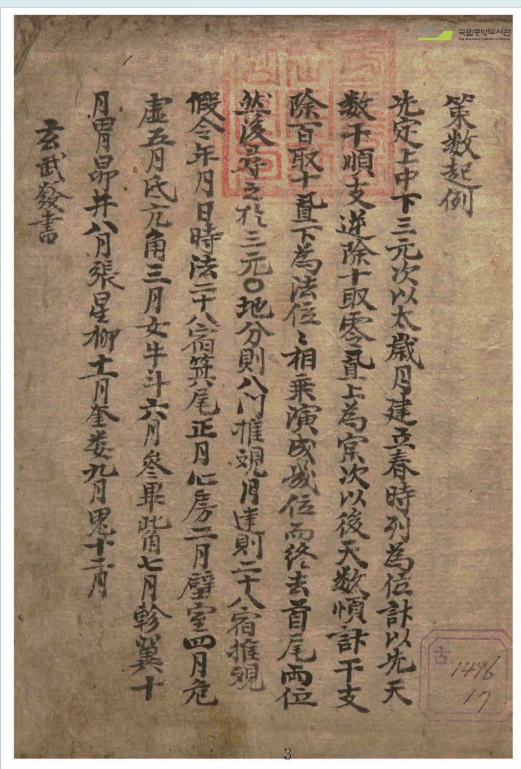 국립중앙도서관
THE NATIONAL LIBRARY OF KOREA
策数起例
先定上中下三元次以太歲月建立春時列為位計以先天
数干順支逆除十取零置上為宗次以後天数順計干支
除百取十置下為法位〻相乘演成策位而終去首尾兩位
然後尋之於三元〇地分則八门推覌月建則二十八宿推覌
假令年月日時法二十八宿箕尾正月心房二月壁室四月危
虛五月氐亢角三月女牛斗六月參觜七月軫翼十
月胃昴井八月張星柳十一月奎娄九月鬼十二月
玄武發書
古
1496
17
3